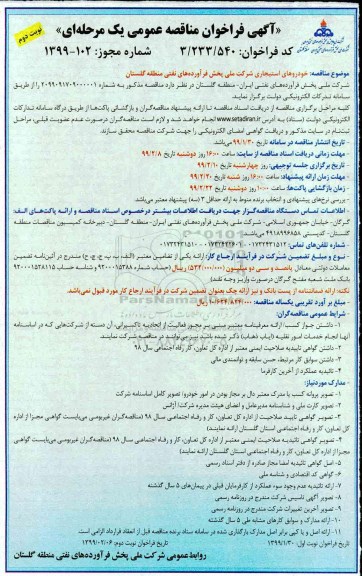 نوبت دوم
«آگهی فراخوان مناقصه عمومی یک مرحله‌ای»
کد فراخوان: ۳/۲۳۳/۵۴۰ شماره مجوز: ۱۰۲-۱۳۹۹
موضوع مناقصه: خودروهای استیجاری شرکت ملی پخش فرآورده‌های نفتی منطقه گلستان
شرکت ملی پخش فرآورده‌های نفتی ایران- منطقه گلستان در نظر دارد مناقصه مذکور به شماره را از طریق
سامانه تدارکات الکترونیکی دولت برگزار نماید.
کلیه مراحل برگزاری مناقصه از دریافت اسناد مناقصه تا ارائه پیشنهاد مناقصه‌گران و بازگشایی پاکت‌ها از طریق درگاه سامانه تدارکات
الکترونیکی دولت (ستاد) به آدرس www.setadiran.ir انجام خواهد شد و لازم است مناقصه‌گران درصورت عدم عضویت قبلی، مراحل
ثبت‌نام در سایت مذکور و دریافت گواهی امضای الکترونیکی را جهت شرکت مناقصه محقق سازند.
- تاریخ انتشار مناقصه در سامانه تاریخ ۹۹/۱/۳۰ می‌باشد
- مهلت زمانی دریافت اسناد مناقصه از سایت: ساعت ۱۶:۰۰ روز دوشنبه تاریخ ۹۹/۲/۸
- تاریخ برگزاری جلسه توجیهی: روز چهارشنبه تاریخ ۹۹/۲/۱۰
- مهلت زمان ارائه پیشنهاد: ساعت ۱۶:۰۰ روز شنبه تاریخ ۹۹/۲/۲۰
- زمان بازگشایی پاکت‌ها: ساعت ۱۰:۰۰ روز دوشنبه تاریخ ۹۹/۲/۲۲
- بررسی نرخ‌های پیشنهادی و انتخاب برنده منوط به ارائه حداقل ۳ (سه) پیشنهاد معتبر می‌باشد.
- اطلاعات تماس دستگاه مناقصه‌گزار جهت دریافت اطلاعات بیشتر درخصوص اسناد مناقصه و ارائه پاکت‌های الف:
گرگان- خیابان جمهوری اسلامی- شرکت ملی پخش فرآورده‌های نفتی ایران- منطقه گلستان- دبیرخانه کمیسیون مناقصات منطقه
گلستان- کدپستی ۴۹۱۸۹۹۶۸۵۸ می‌باشد.
- شماره تلفن‌های تماس:
- نوع و مبلغ تضمین شرکت در فرآیند ارجاع کار: ارائه یکی از تضامین معتبر مندرج در آئین‌نامه تضمین
معاملات دولتی معادل پانصد و سی و دو میلیون ریال
نکته: ارائه ضمانتنامه از پست بانک و نیز ارائه چک بعنوان تضمین شرکت در فرآیند ارجاع کار مورد قبول نمی‌باشد.
- مبلغ برآورد تقریبی یکساله مناقصه: ریال
- شرایط عمومی مناقصه‌گران:
۲- داشتن گواهی تاییدیه صلاحیت ایمنی معتبر از اداره کل تعاون، کار و رفاه اجتماعی سال ۹۸
۳- داشتن سوابق کار مرتبط، حسن سابقه و توانمندی مالی
۴- تائیدیه عملکرد از آخرین کارفرما
- مدارک موردنیاز:
۱- تصویر پروانه کسب یا مدرک معتبر دال بر مجاز بودن در امور خودرو/ تصویر کامل اساسنامه شرکت
۲- تصویر کارت ملی و شناسنامه مدیرعامل و اعضای هیئت مدیره شرکت/ آژانس
۳- تصویر گواهی تایید صلاحیت از اداره کل تعاون، کار و رفاه اجتماعی سال ۹۸ (مناقصه‌گران غیربومی می‌بایست گواهی مجزا از اداره
کل تعاون، کار و رفاه اجتماعی استان گلستان ارائه نمایند)
۴- تصویر گواهی تاییدیه صلاحیت ایمنی معتبر از اداره کل تعاون، کار و رفاه اجتماعی سال ۹۸ (مناقصه‌گران غیربومی می‌بایست گواهی
مجزا از اداره کل تعاون، کار و رفاه اجتماعی استان گلستان ارائه نمایند)
۵- اصل گواهی تائیدیه امضا مجاز صادره از دفتر اسناد رسمی
۶- گواهی کد اقتصادی و شناسه ملی
۷- ارائه تائیدیه عدم وجود سوء عملکرد از کارفرمایان قبلی در پیمان‌های ۵ سال گذشته
۸- تصویر آگهی تاسیس شرکت مندرج در روزنامه رسمی
۹- تصویر آخرین تغییرات شرکت مندرج در روزنامه رسمی
۱۰- ارائه مدارک و سوابق کارهای مشابه طی ۵ سال گذشته
۱۱- ارائه اصل و یا کپی برابر اصل مدارک بارگذاری شده در سامانه ستاد برنده مناقصه قبل از انعقاد قرارداد الزامی است.
تاریخ فراخوان نوبت اول: ۱۳۹۹/۱/۳۰ تاریخ فراخوان نوبت دوم: ۱۳۹۹/۰۲/۰۶
روابط عمومی شرکت ملی پخش فرآورده‌های نفتی منطقه گلستان